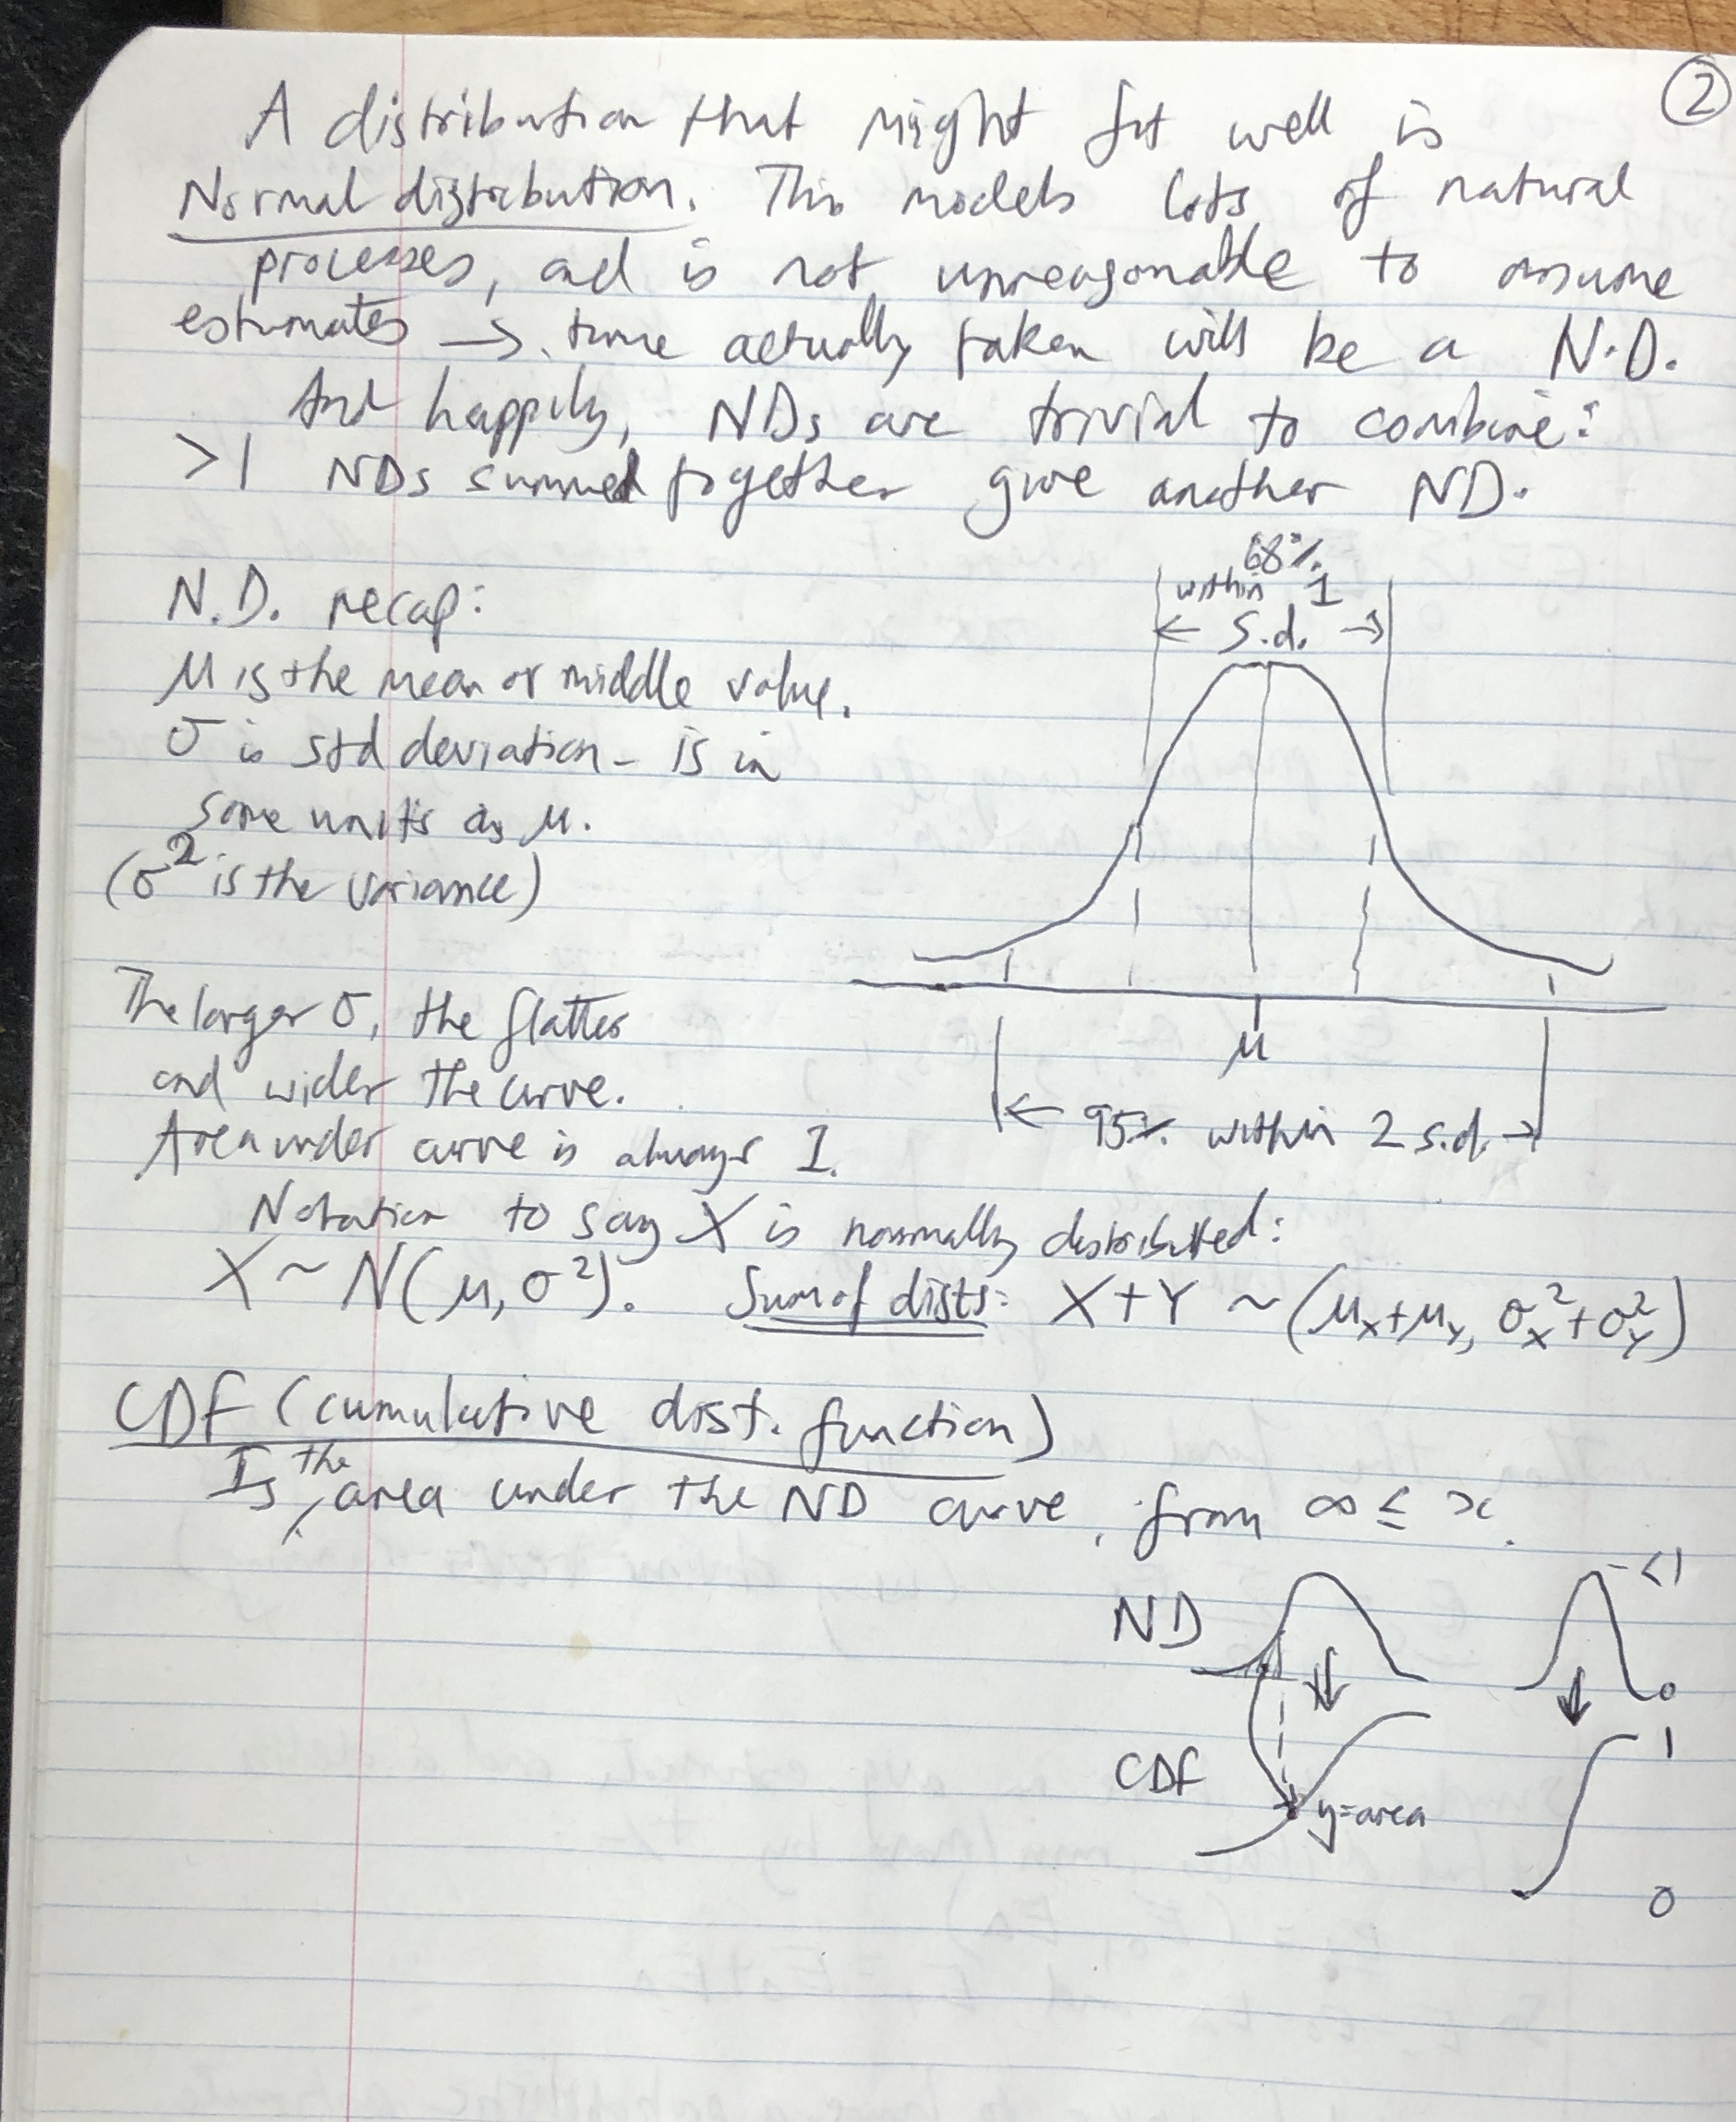 ②
A distribution that might fit well is
Normal distribution. This models lots of natural
processes, and is not unreasonable to assume
estimates → time actually taken will be a N.D.
And happily, NDs are trivial to combine:
>1 NDs summed together give another ND.
68%
within 1
← s.d. →
N.D. recap:
μ is the mean or middle value.
σ is std deviation - is in
same units as μ.
(σ² is the variance)
μ
← 95% within 2 s.d. →
The larger σ, the flatter
and wider the curve.
Area under curve is always 1.
Notation to say X is normally distributed:
X ~ N(μ, σ²). Sum of dists: X+Y ~ (μ_X+μ_Y, σ_X²+σ_Y²)
CDF (cumulative dist. function)
Is the area under the ND curve, from ∞ ≤ x.
ND
<1
0
CDF
y=area
1
0